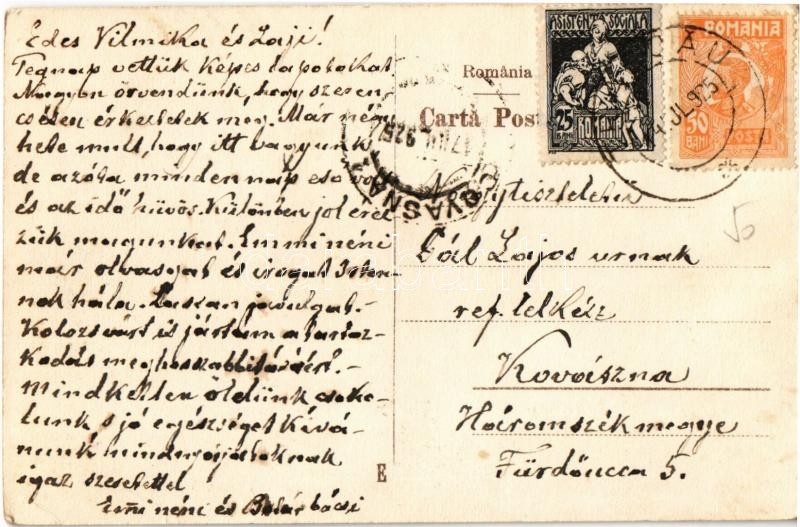 Édes Vilmika és Laji!
Tegnap vettük képes lapotokat
Nagyon örvendünk, hogy szeren-
csésen érkeztetek meg. Már négy
hete mult, hogy itt vagyunk
de azóta minden nap eső vo
és az idő hűvös. Különben jól érez
zük magunkat. Emmi néni
már olvasgat és irogat Isten-
nek hála. Lassan javulgat.-
Kolozsvárt is jártam a tartóz-
kodás meghosszabbításáért.-
Mindketten ölelünk csóko-
lunk s jó egészséget kívá-
nunk mindnyájatoknak
igaz szeretettel
Emi néni és bácsi
România
Carta Post
ASISTENTA SOCIALA
25
BANI
ROMANIA
ROMANIA
50
BANI
POSTA
COVASNA
Nagytiszteletű
Gál Lajos urnak
ref. lelkész
Kovászna
Háromszékmegye
Fürdőucca 5.
50
E